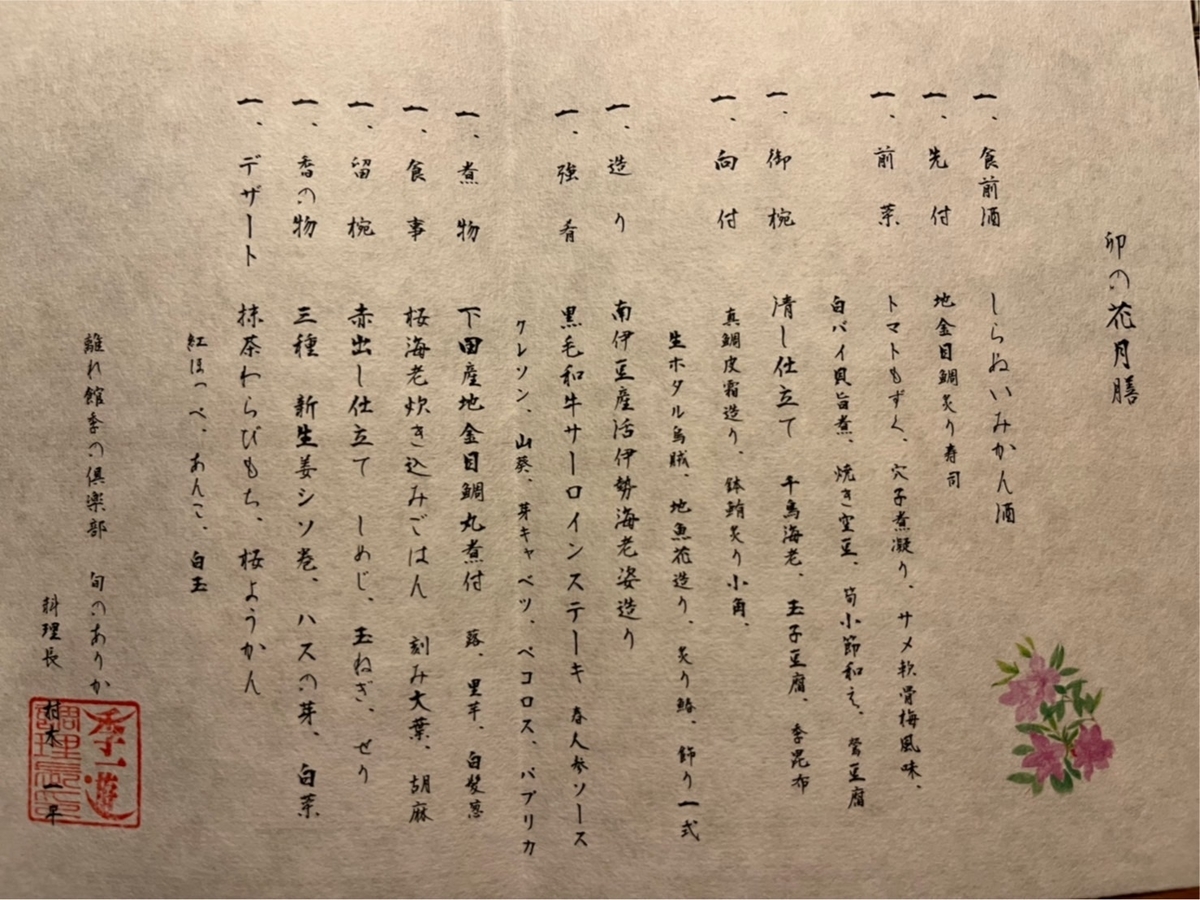 卯の花月膳
一、食前酒 しらぬいみかん酒
一、先付 地金目鯛炙り寿司
一、前菜 トマトもずく、穴子煮凝り、サメ軟骨梅風味、
白バイ貝旨煮、焼き空豆、筍小節和え、鶯豆腐
一、御椀 清し仕立て 千鳥海老、玉子豆腐、季昆布
一、向付 真鯛皮霜造り、鉢鮪炙り小角、
生ホタル烏賊、地魚花造り、炙り鰆、飾り一式
一、造り 南伊豆産活伊勢海老姿造り
一、強肴 黒毛和牛サーロインステーキ 春人参ソース
クレソン、山葵、芽キャベツ、ペコロス、パプリカ
一、煮物 下田産地金目鯛丸煮付 蕗、里芋、白髪葱
一、食事 桜海老炊き込みごはん 刻み大葉、胡麻
一、留椀 赤出し仕立て しめじ、玉ねぎ、せり
一、香の物 三種 新生姜シソ巻、ハスの芽、白菜
一、デザート 抹茶わらびもち、桜ようかん
紅ほっぺ、あんこ、白玉
離れ館季の倶楽部 旬のありか
料理長 村木 一平
季一遊